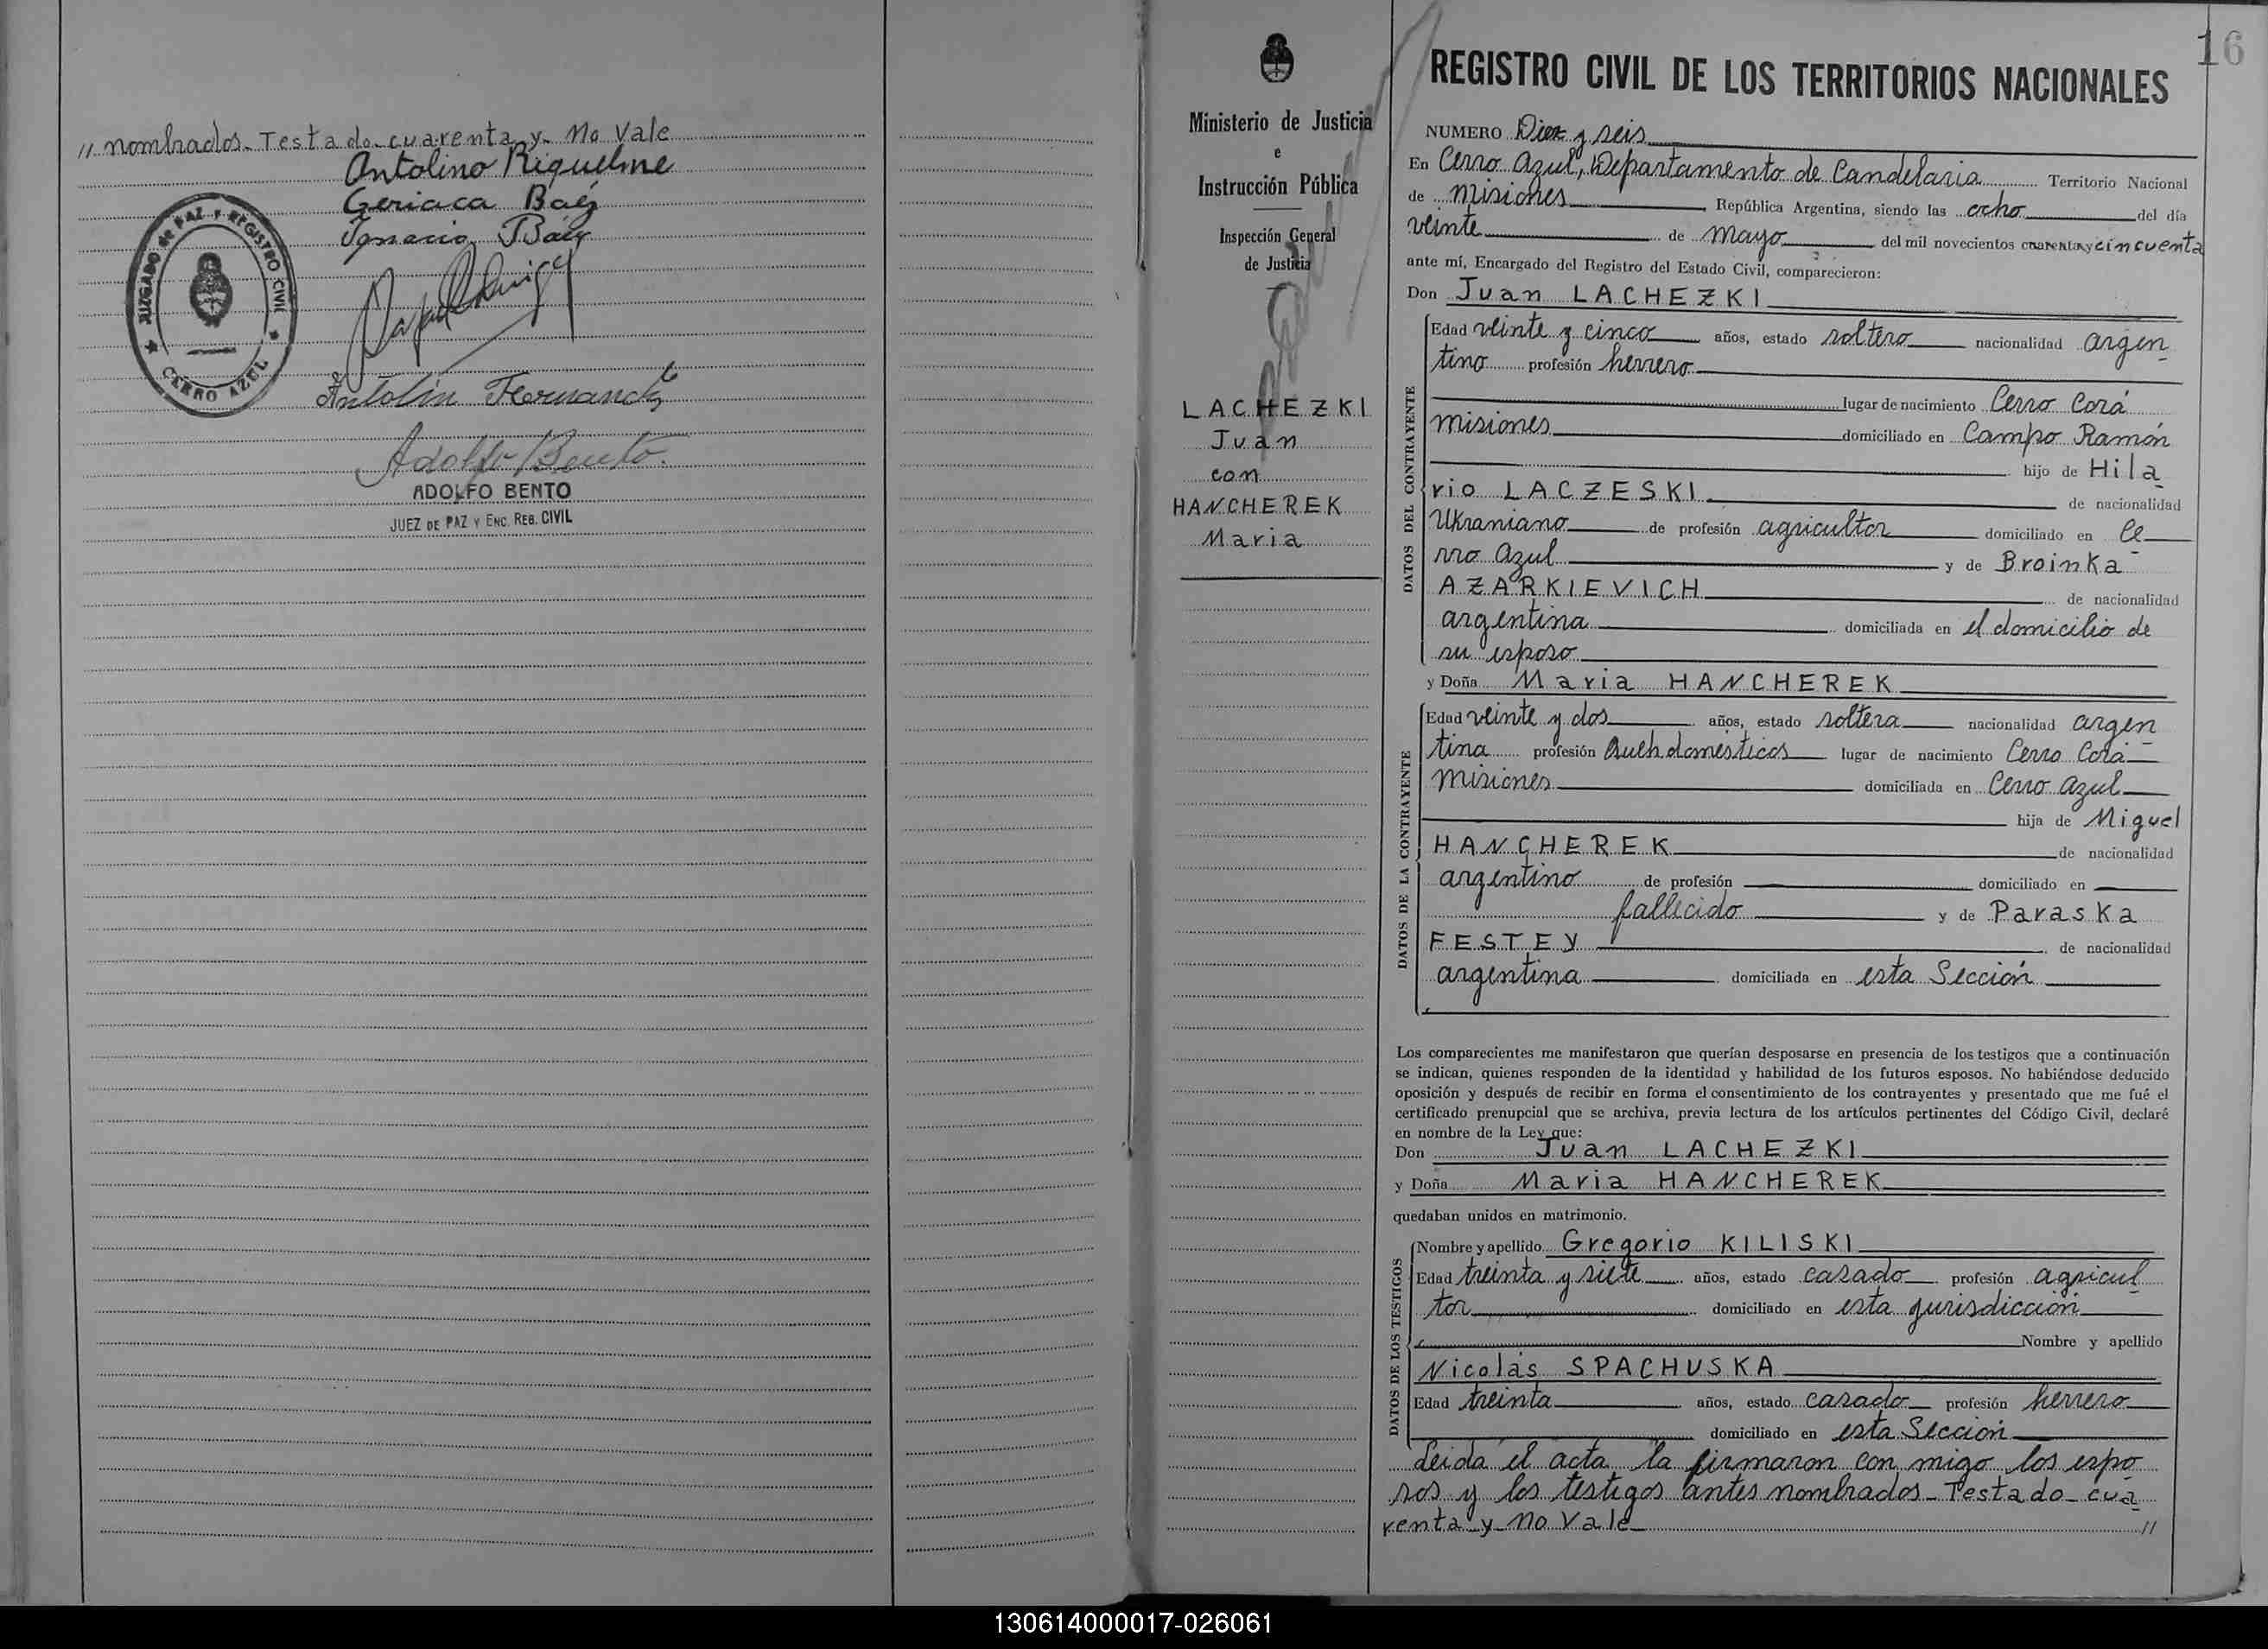 // nombrados. Testado. cuarenta y. No Vale
Antolino Riquelme
Geriaca Baéz
Ignacio Báez
JUZGADO DE PAZ Y REGISTRO CIVIL
★ CERRO AZUL ★
Antolín Hernandez
Adolfo Bento.
ADOLFO BENTO
JUEZ DE PAZ Y ENC. REG. CIVIL
Ministerio de Justicia
e
Instrucción Pública
Inspección General
de Justicia
LACHEZKI
Juan
con
HANCHEREK
Maria
16
REGISTRO CIVIL DE LOS TERRITORIOS NACIONALES
NUMERO Diez y seis
En Cerro Azul, Departamento de Candelaria Territorio Nacional
de Misiones República Argentina, siendo las ocho del día
veinte de mayo del mil novecientos cuarenta y cincuenta
ante mí, Encargado del Registro del Estado Civil, comparecieron:
Don Juan LACHEZKI
DATOS DEL CONTRAYENTE
Edad veinte y cinco años, estado soltero nacionalidad argen
tino profesión herrero
lugar de nacimiento Cerro Corá
Misiones domiciliado en Campo Ramón
hijo de Hila
rio LACZESKI de nacionalidad
Ukraniano de profesión agricultor domiciliado en Ce
rro Azul y de Broinka
AZARKIEVICH de nacionalidad
argentina domiciliada en el domicilio de
su esposo
y Doña Maria HANCHEREK
DATOS DE LA CONTRAYENTE
Edad veinte y dos años, estado soltera nacionalidad argen
tina profesión Queh. domésticos lugar de nacimiento Cerro Corá
Misiones domiciliada en Cerro Azul
hija de Miguel
HANCHEREK de nacionalidad
argentino de profesión domiciliado en
fallecido y de Paraska
FESTEY de nacionalidad
argentina domiciliada en esta Sección
Los comparecientes me manifestaron que querían desposarse en presencia de los testigos que a continuación
se indican, quienes responden de la identidad y habilidad de los futuros esposos. No habiéndose deducido
oposición y después de recibir en forma el consentimiento de los contrayentes y presentado que me fué el
certificado prenupcial que se archiva, previa lectura de los artículos pertinentes del Código Civil, declaré
en nombre de la Ley que:
Don Juan LACHEZKI
y Doña Maria HANCHEREK
quedaban unidos en matrimonio.
DATOS DE LOS TESTIGOS
Nombre y apellido Gregorio KILISKI
Edad treinta y siete años, estado casado profesión agricul
tor domiciliado en esta jurisdicción
Nombre y apellido
Nicolás SPACHUSKA
Edad treinta años, estado casado profesión herrero
domiciliado en esta Sección
Leida el acta la firmaron con migo los espo
sos y los testigos antes nombrados - Testado - cua
renta y no Vale //
130614000017-026061